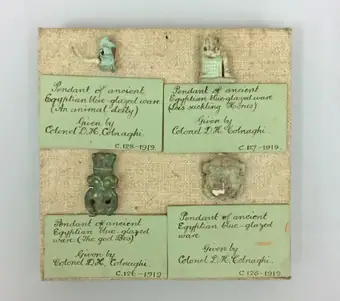 Pendant of ancient
Egyptian blue-glazed ware
(An animal deity)
Given by
Colonel D.H. Colnaghi.
C.128-1919.
Pendant of ancient
Egyptian blue-glazed ware
(Isis suckling Horus)
Given by
Colonel D.H. Colnaghi.
C.127-1919.
Pendant of ancient
Egyptian blue-glazed
ware (The god Bes)
Given by
Colonel D.H. Colnaghi.
C.126-1919
Pendant of ancient
Egyptian blue-glazed
ware
Given by
Colonel D.H. Colnaghi.